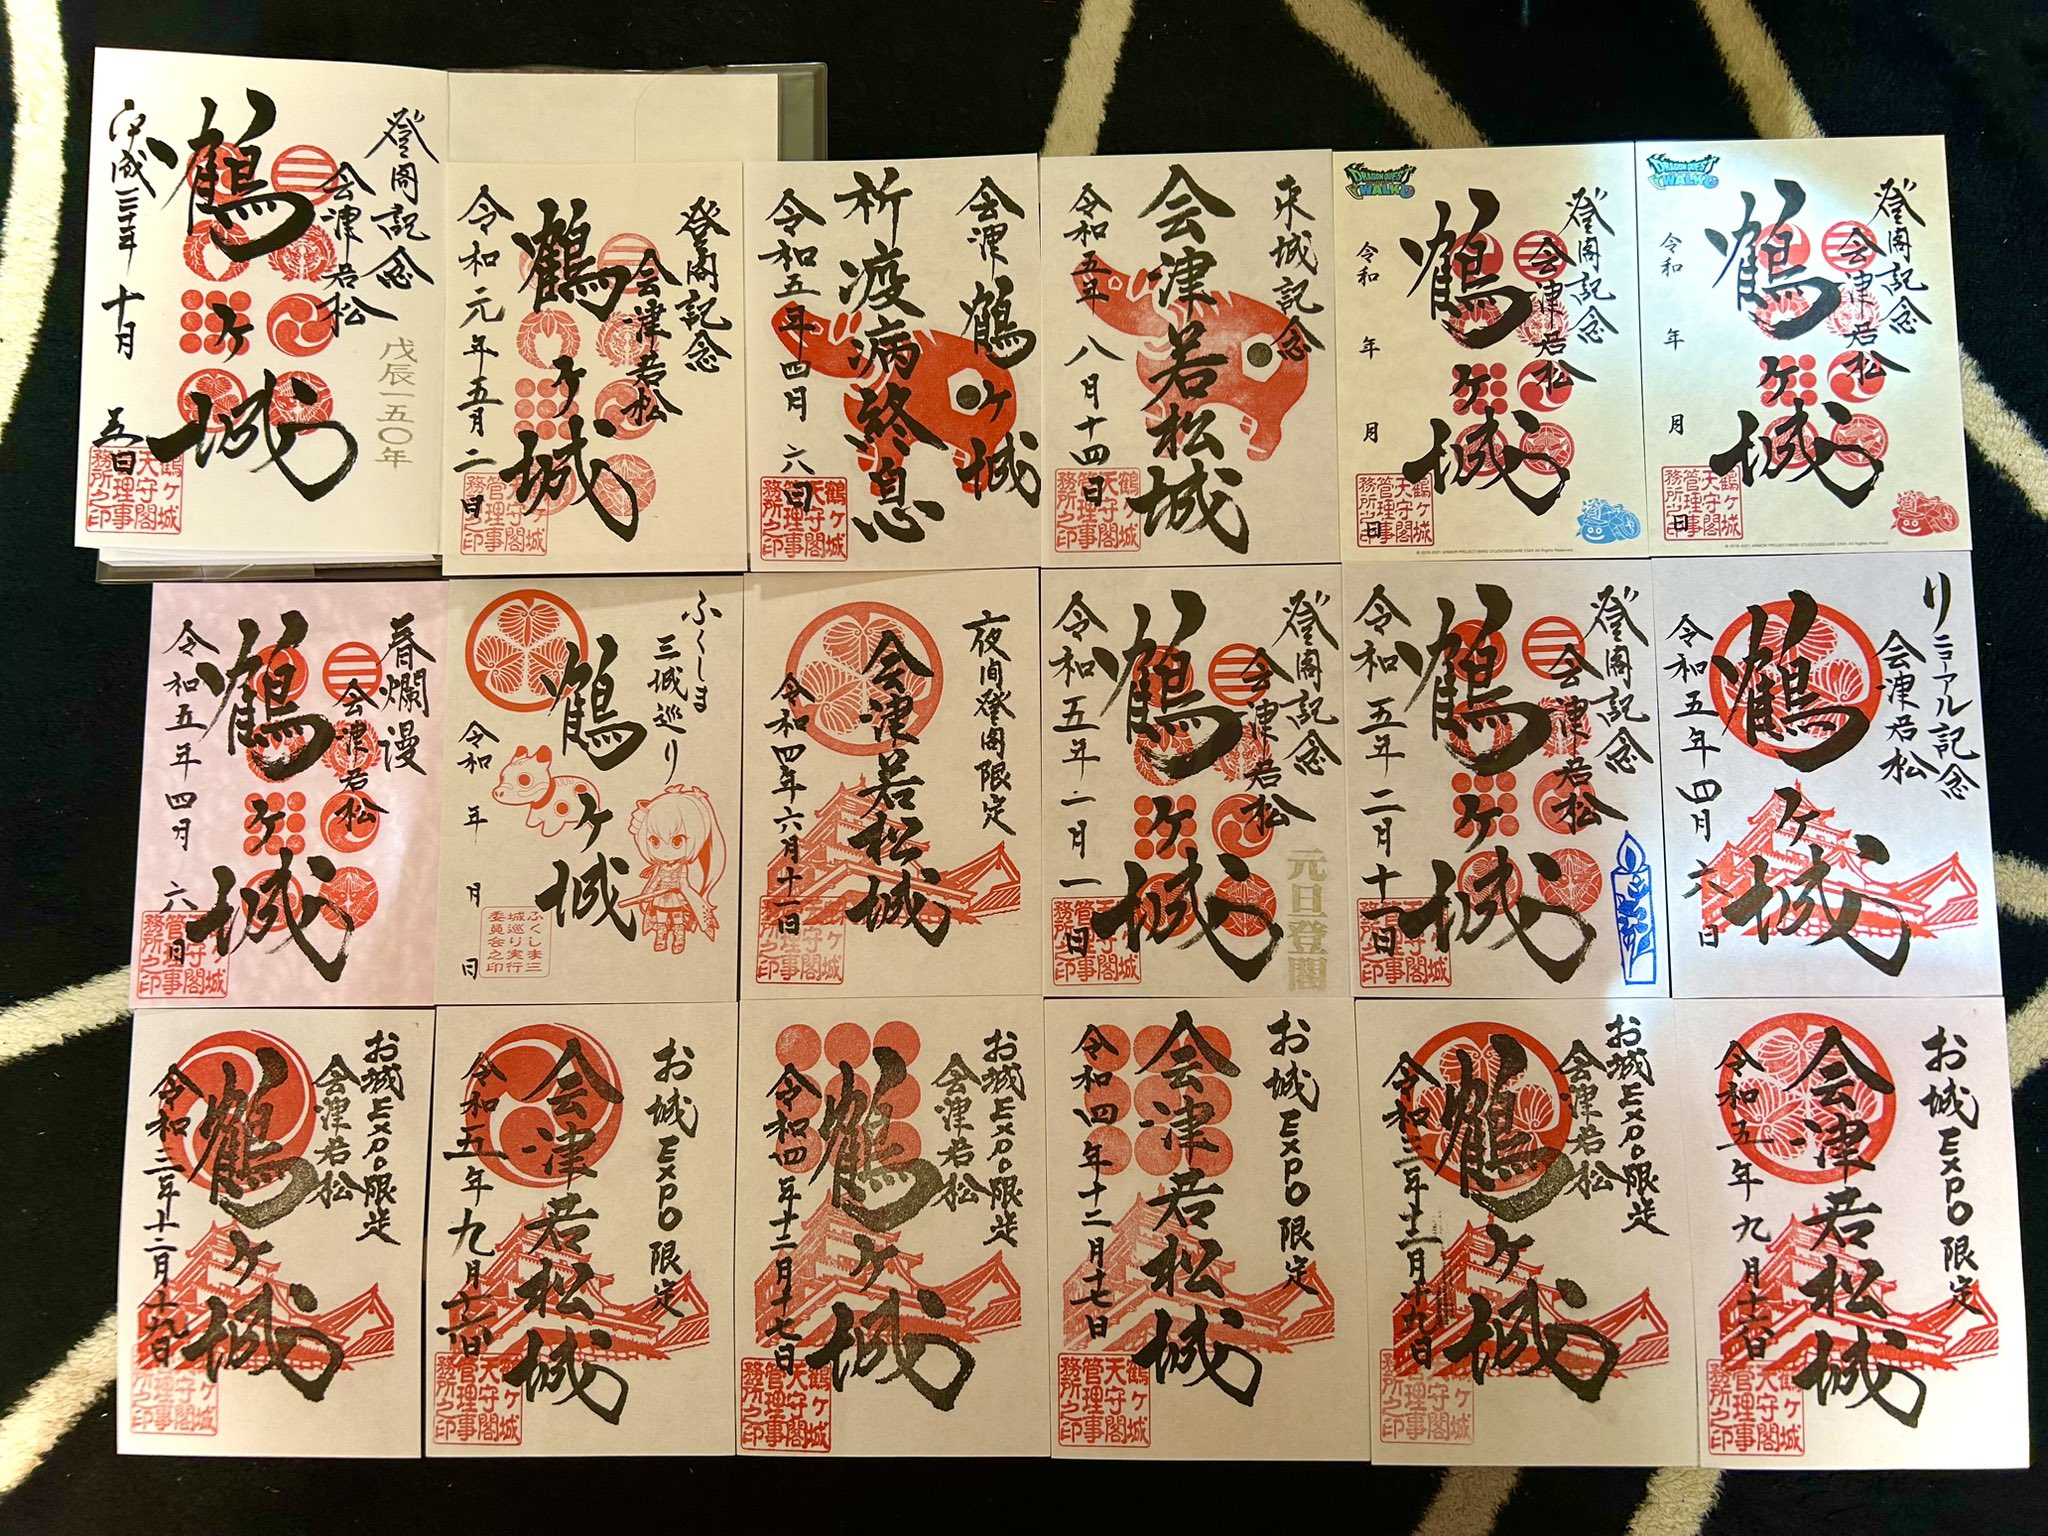 登閣記念
会津若松
鶴ヶ城
平成三十年 十月 五日
戊辰一五〇年
鶴ヶ城
天守閣
管理事
務所之印
登閣記念
会津若松
鶴ヶ城
令和元年五月二日
鶴ヶ城
天守閣
管理事
務所之印
会津鶴ヶ城
祈疫病終息
令和五年四月六日
鶴ヶ城
天守閣
管理事
務所之印
来城記念
会津若松城
令和五年八月十四日
鶴ヶ城
天守閣
管理事
務所之印
DRAGON QUEST
WALK
登閣記念
会津若松
鶴ヶ城
令和 年 月 日
鶴ヶ城
天守閣
管理事
務所之印
DRAGON QUEST
WALK
登閣記念
会津若松
鶴ヶ城
令和 年 月 日
鶴ヶ城
天守閣
管理事
務所之印
春爛漫
会津若松
鶴ヶ城
令和五年四月六日
鶴ヶ城
天守閣
管理事
務所之印
ふくしま
三城巡り
鶴ヶ城
令和 年 月 日
ふくしま三
城巡り実行
委員会之印
夜間登閣限定
会津若松城
令和四年六月十一日
鶴ヶ城
天守閣
管理事
務所之印
登閣記念
会津若松
鶴ヶ城
令和五年一月一日
元旦登閣
鶴ヶ城
天守閣
管理事
務所之印
登閣記念
会津若松
鶴ヶ城
令和五年二月十一日
鶴ヶ城
天守閣
管理事
務所之印
リニューアル記念
会津若松
鶴ヶ城
令和五年四月六日
お城EXPO限定
会津若松
鶴ヶ城
令和三年十二月十九日
鶴ヶ城
天守閣
管理事
務所之印
お城EXPO限定
会津若松城
令和五年九月十六日
鶴ヶ城
天守閣
管理事
務所之印
お城EXPO限定
会津若松
鶴ヶ城
令和四年十二月十七日
鶴ヶ城
天守閣
管理事
務所之印
お城EXPO限定
会津若松城
令和四年十二月十七日
鶴ヶ城
天守閣
管理事
務所之印
お城EXPO限定
会津若松
鶴ヶ城
令和三年十二月十九日
鶴ヶ城
天守閣
管理事
務所之印
お城EXPO限定
会津若松城
令和五年九月十六日
鶴ヶ城
天守閣
管理事
務所之印